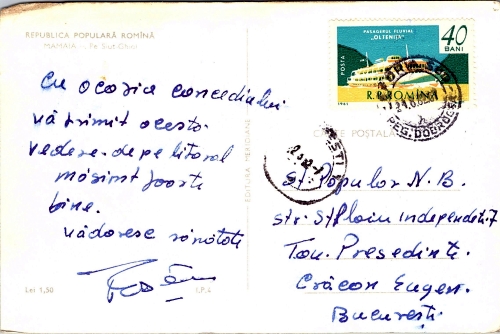 REPUBLICA POPULARĂ ROMÎNĂ
MAMAIA - Pe Siut-Ghiol
Cu ocazia concediului
vă trimit acesta
vedere de pe litoral
mă simt foarte
bine.
vă doresc sănătate
Lei 1,50
I.P.4
EDITURA MERIDIANE
PASAGERUL FLUVIAL
"OLTENIȚA"
40
BANI
POSTA
R.P.ROMINA
1961
REG. DOBROGEA
CARTE POSTALĂ
St. Popular N.B.
str. St Plain independenti 7
Tov. Presedinte
Crăcan Eugen.
București